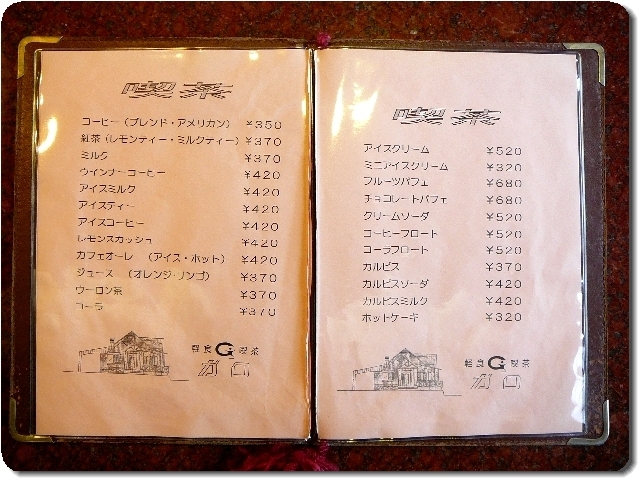 喫茶
コーヒー（ブレンド・アメリカン） ￥350
紅茶（レモンティー・ミルクティー） ￥370
ミルク ￥370
ウインナーコーヒー ￥420
アイスミルク ￥420
アイスティー ￥420
アイスコーヒー ￥420
レモンスカッシュ ￥420
カフェオーレ （アイス・ホット） ￥420
ジュース （オレンジ・リンゴ） ￥370
ウーロン茶 ￥370
コーラ ￥370
軽食 G 喫茶
ガロ
喫茶
アイスクリーム ￥520
ミニアイスクリーム ￥320
フルーツパフェ ￥680
チョコレートパフェ ￥680
クリームソーダ ￥520
コーヒーフロート ￥520
コーラフロート ￥520
カルピス ￥370
カルピスソーダ ￥420
カルピスミルク ￥420
ホットケーキ ￥320
軽食 G 喫茶
ガロ